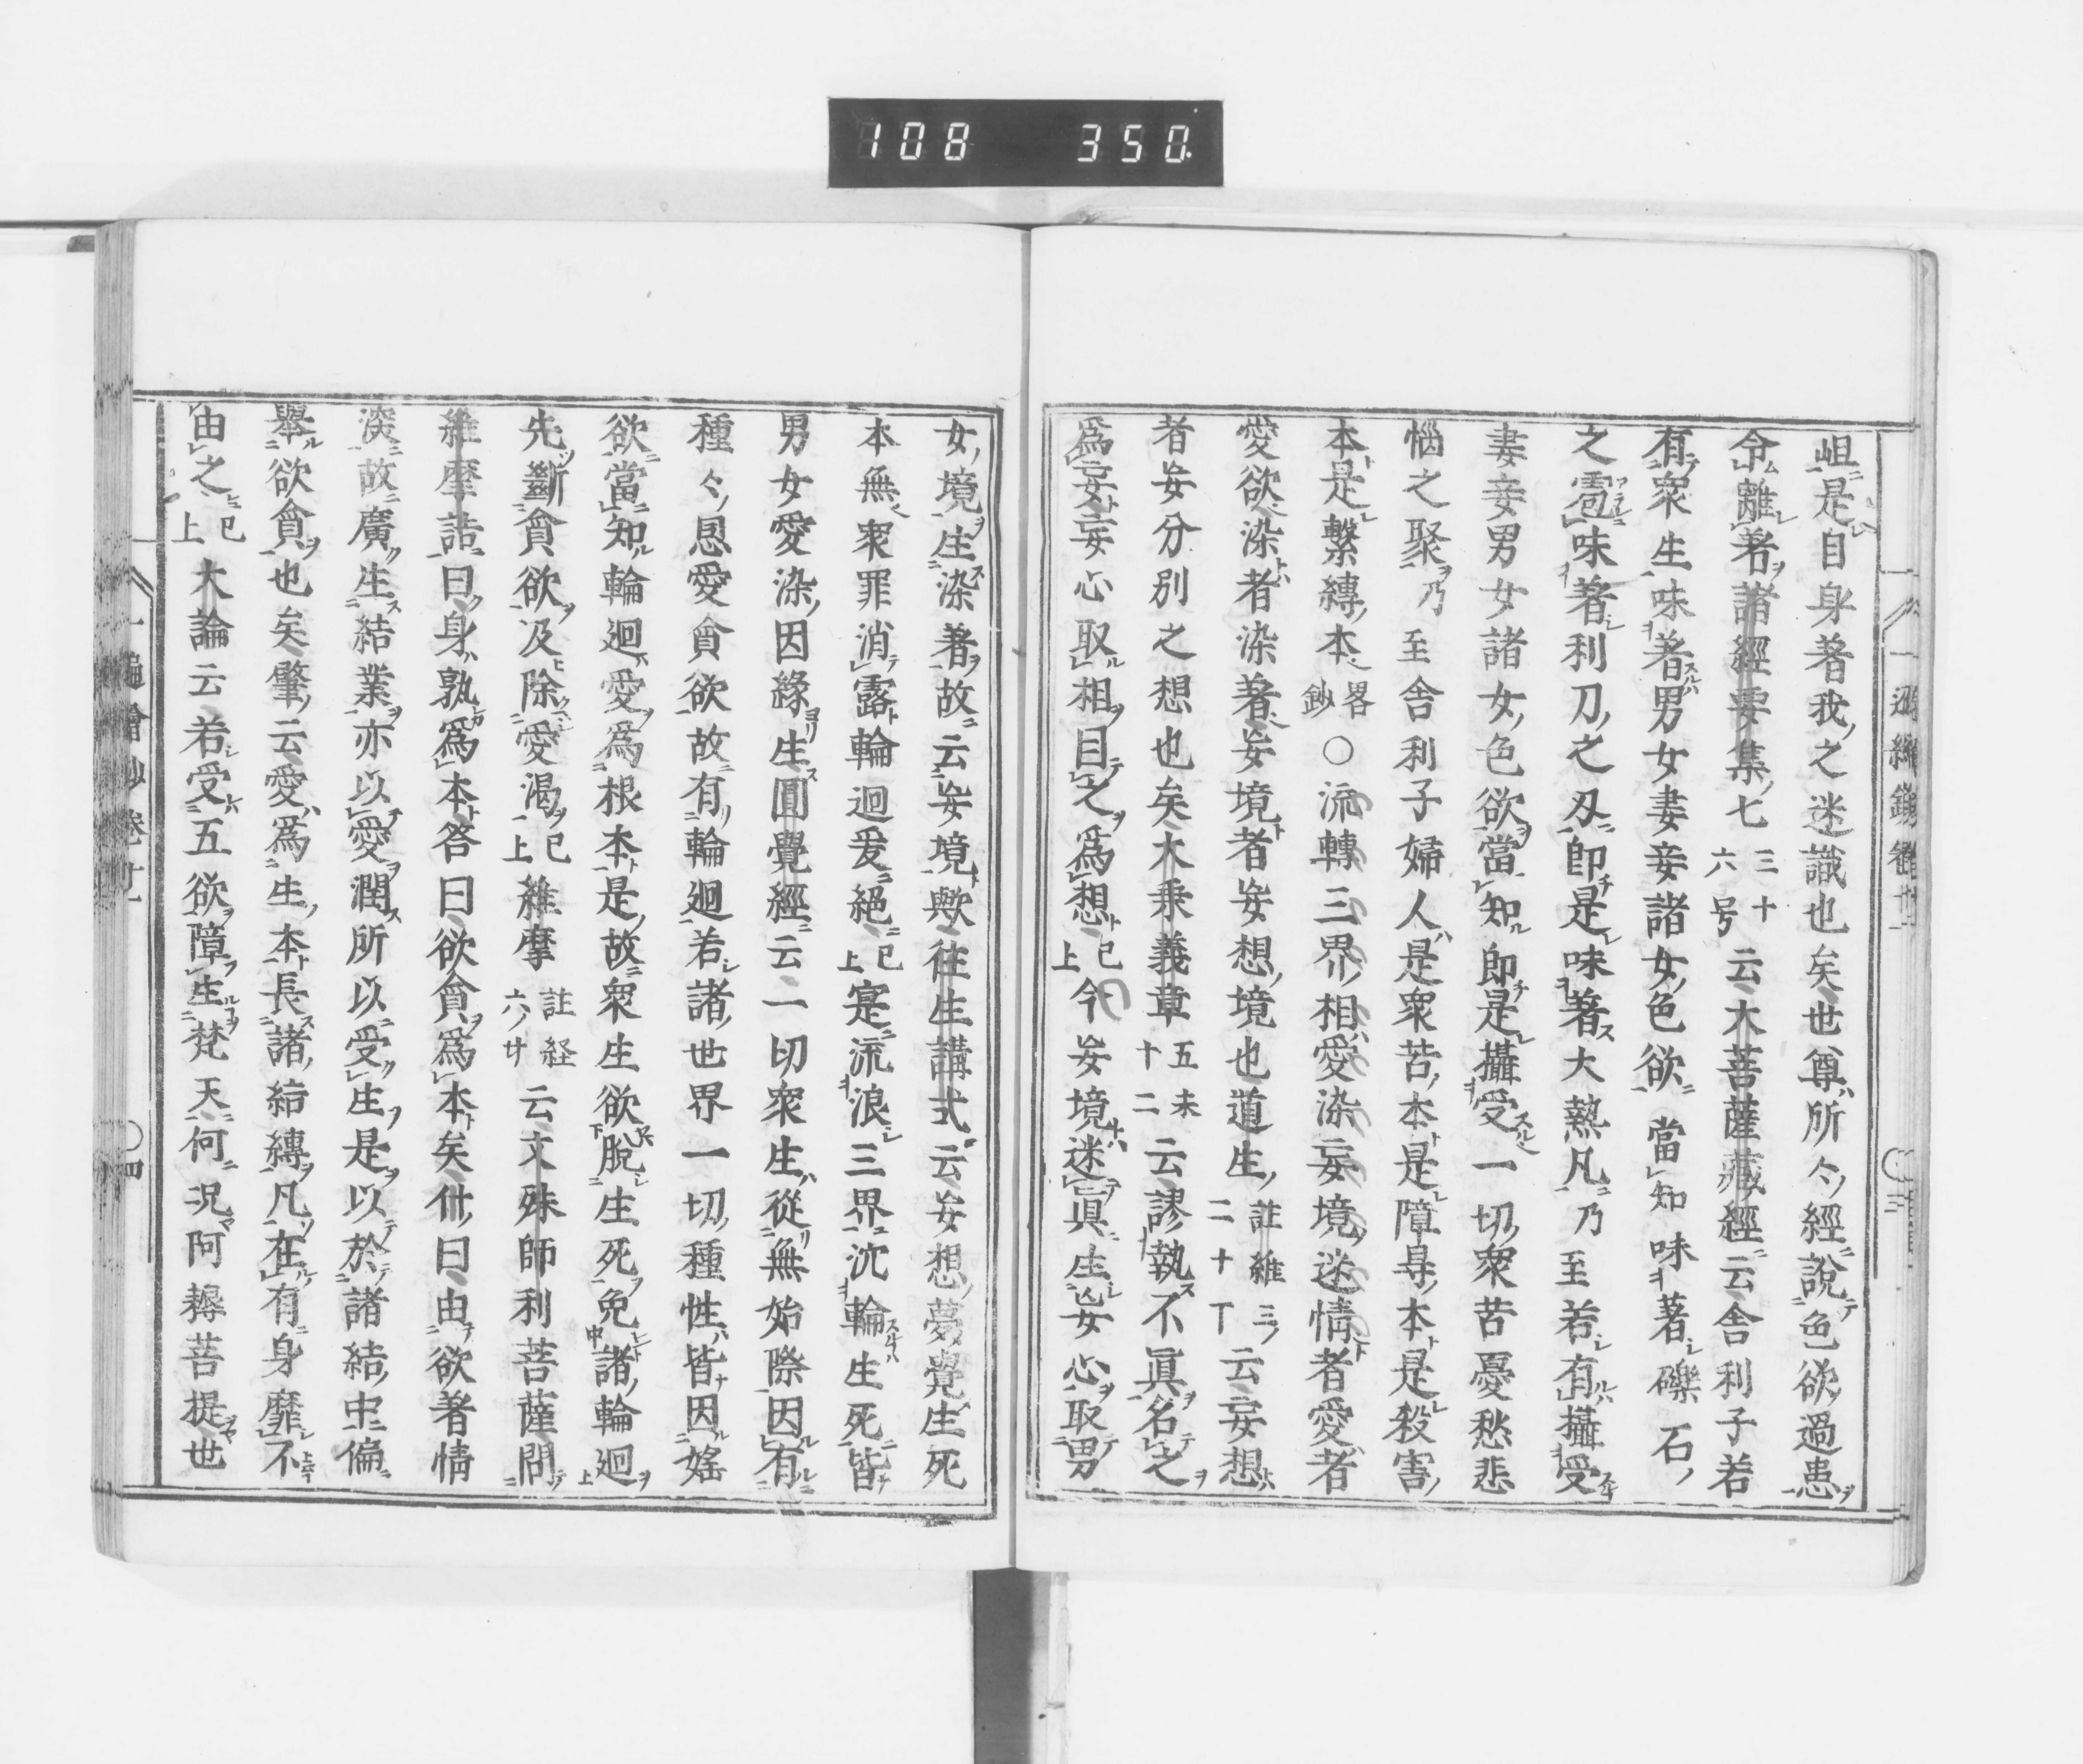 108 350
岨是自身著我之迷識也矣世尊所々經說色欲過患
令離著諸經要集七三十六号云大菩薩藏經云舍利子若
有衆生味著男女妻妾諸女色欲當知味著礫石
之雹味著利刀之刄即是味著大熱凡乃至若有攝受
妻妾男女諸女色欲當知即是攝受一切衆苦憂愁悲
惱之聚乃至舍利子婦人是衆苦本是障㝵本是殺害
本是繫縳本畧鈔○流轉三界相愛染妄境迷情者愛者
愛欲染者染著妄境者妄想境也道生註維三二十丁云妄想
者妄分別之想也矣大乘義章五末十二云謬執不眞名之
爲妄妄心取相目之爲想已上今妄境迷眞生妄心取男
女境生染著故云妄境歟往生講式云妄想夢覺生死
本無衆罪消露輪迴爰絕已上寔流浪三界沈輪生死皆
男女愛染因緣生圓覺經云一切衆生從無始際因有
種々恩愛貪欲故有輪迴若諸世界一切種性皆因婬
欲當知輪迴愛爲根本是故衆生欲脫生死免諸輪迴
先斷貪欲及除愛渴已上維摩註経六廿云文殊師利菩薩問
維摩詰曰身孰爲本答曰欲貪爲本矣什曰由欲著情
深故廣生結業亦以愛潤所以受生是以於諸結中偏
舉欲貪也矣肇云愛爲生本長諸結縳凡在有身靡不
由之已上大論云若受五欲障生梵天何況阿耨菩提世